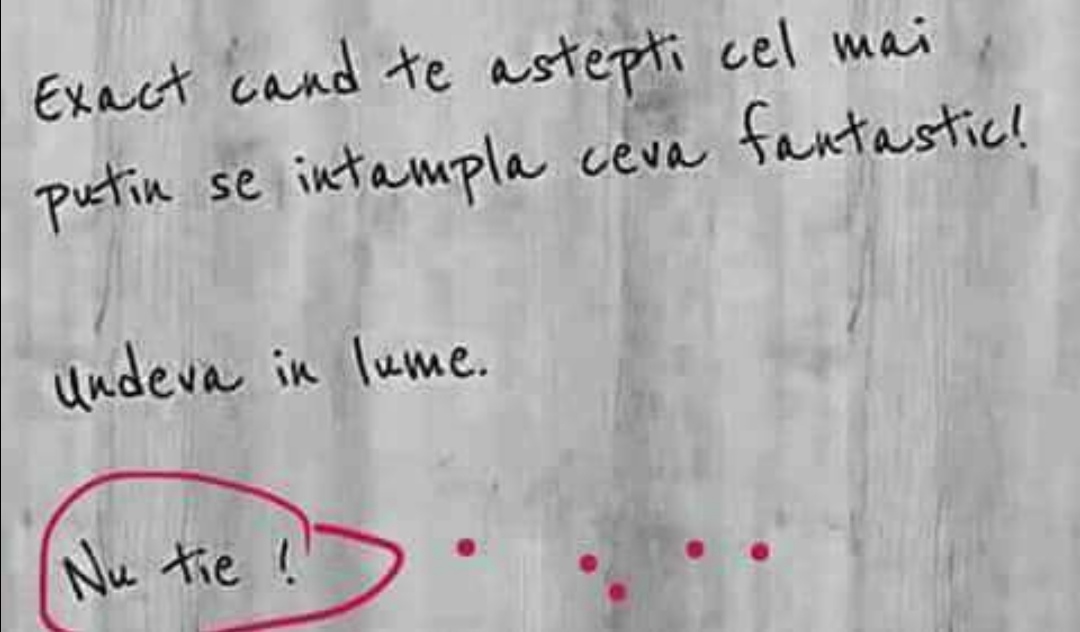 Exact cand te astepti cel mai
putin se intampla ceva fantastic!
Undeva in lume.
Nu tie !